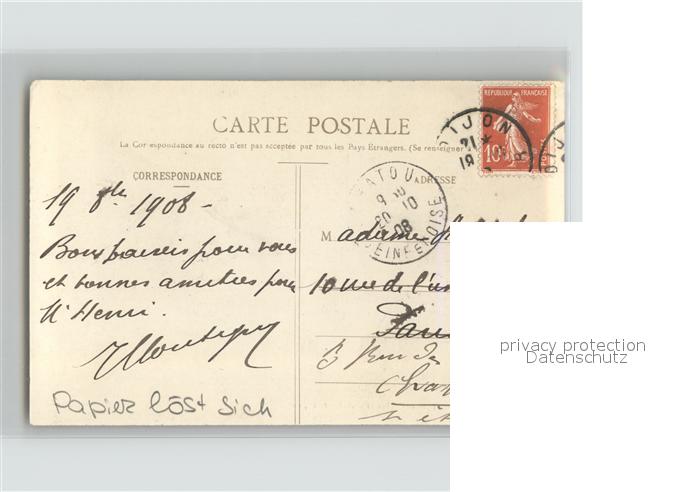 CARTE POSTALE
La Correspondance au recto n'est pas acceptée par tous les Pays Étrangers. (Se renseigner
CORRESPONDANCE
ADRESSE
RÉPUBLIQUE FRANÇAISE
10
DIJON
21
19
CHATOU
9
20 10
08
SEINE ET OISE
19 8bre 1908 -
Bons baisers pour vous
et bonnes amitiés pour
Mr Henri.
M adame
10 rue de l'
Paris
5 Rue de
Chatou
Papier löst sich
privacy protection
Datenschutz